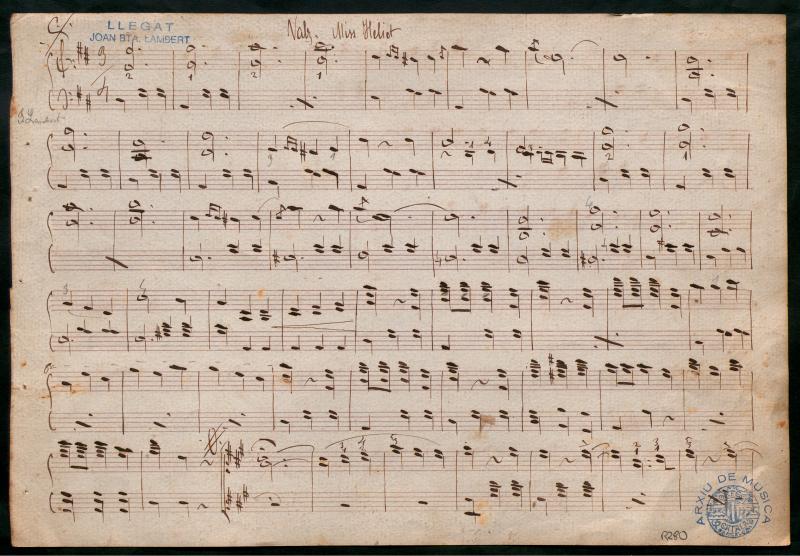 LLEGAT
JOAN BTA. LAMBERT
Vals. Miss Heliet
ARXIU DE MÚSICA
R280